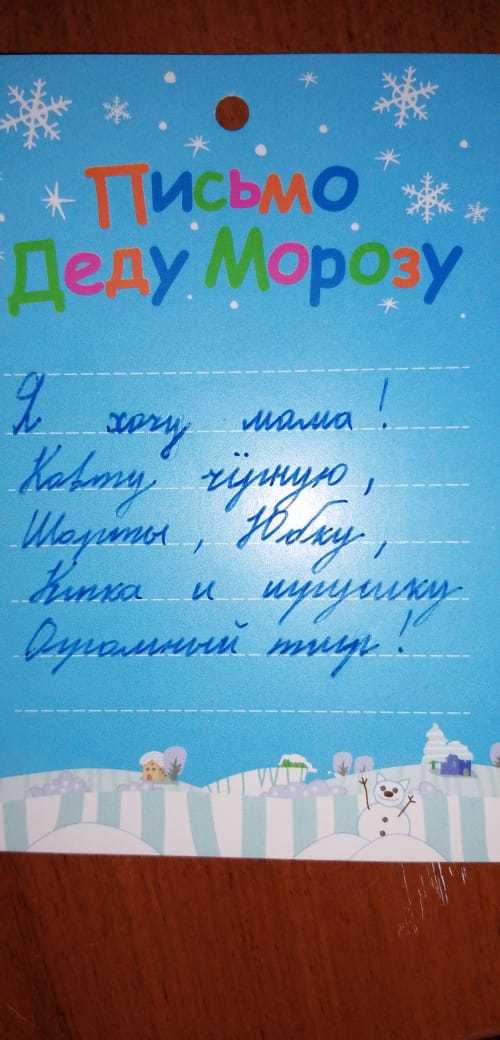 Письмо
Деду Морозу
Я хочу мама!
Кавту чёрную,
Шорты, Юбку,
Кепка и игрушку
Огромный тигр!